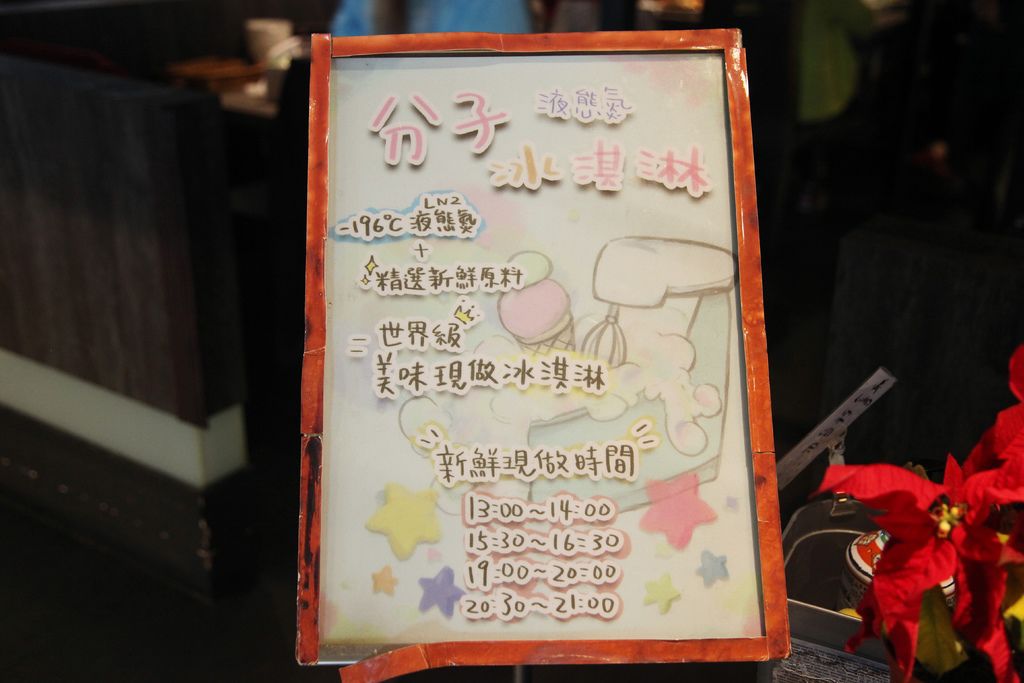 分子 液態氮
冰淇淋
LN2
-196℃ 液態氮
+
精選新鮮原料
= 世界級
美味現做冰淇淋
新鮮現做時間
13:00~14:00
15:30~16:30
19:00~20:00
20:30~21:00